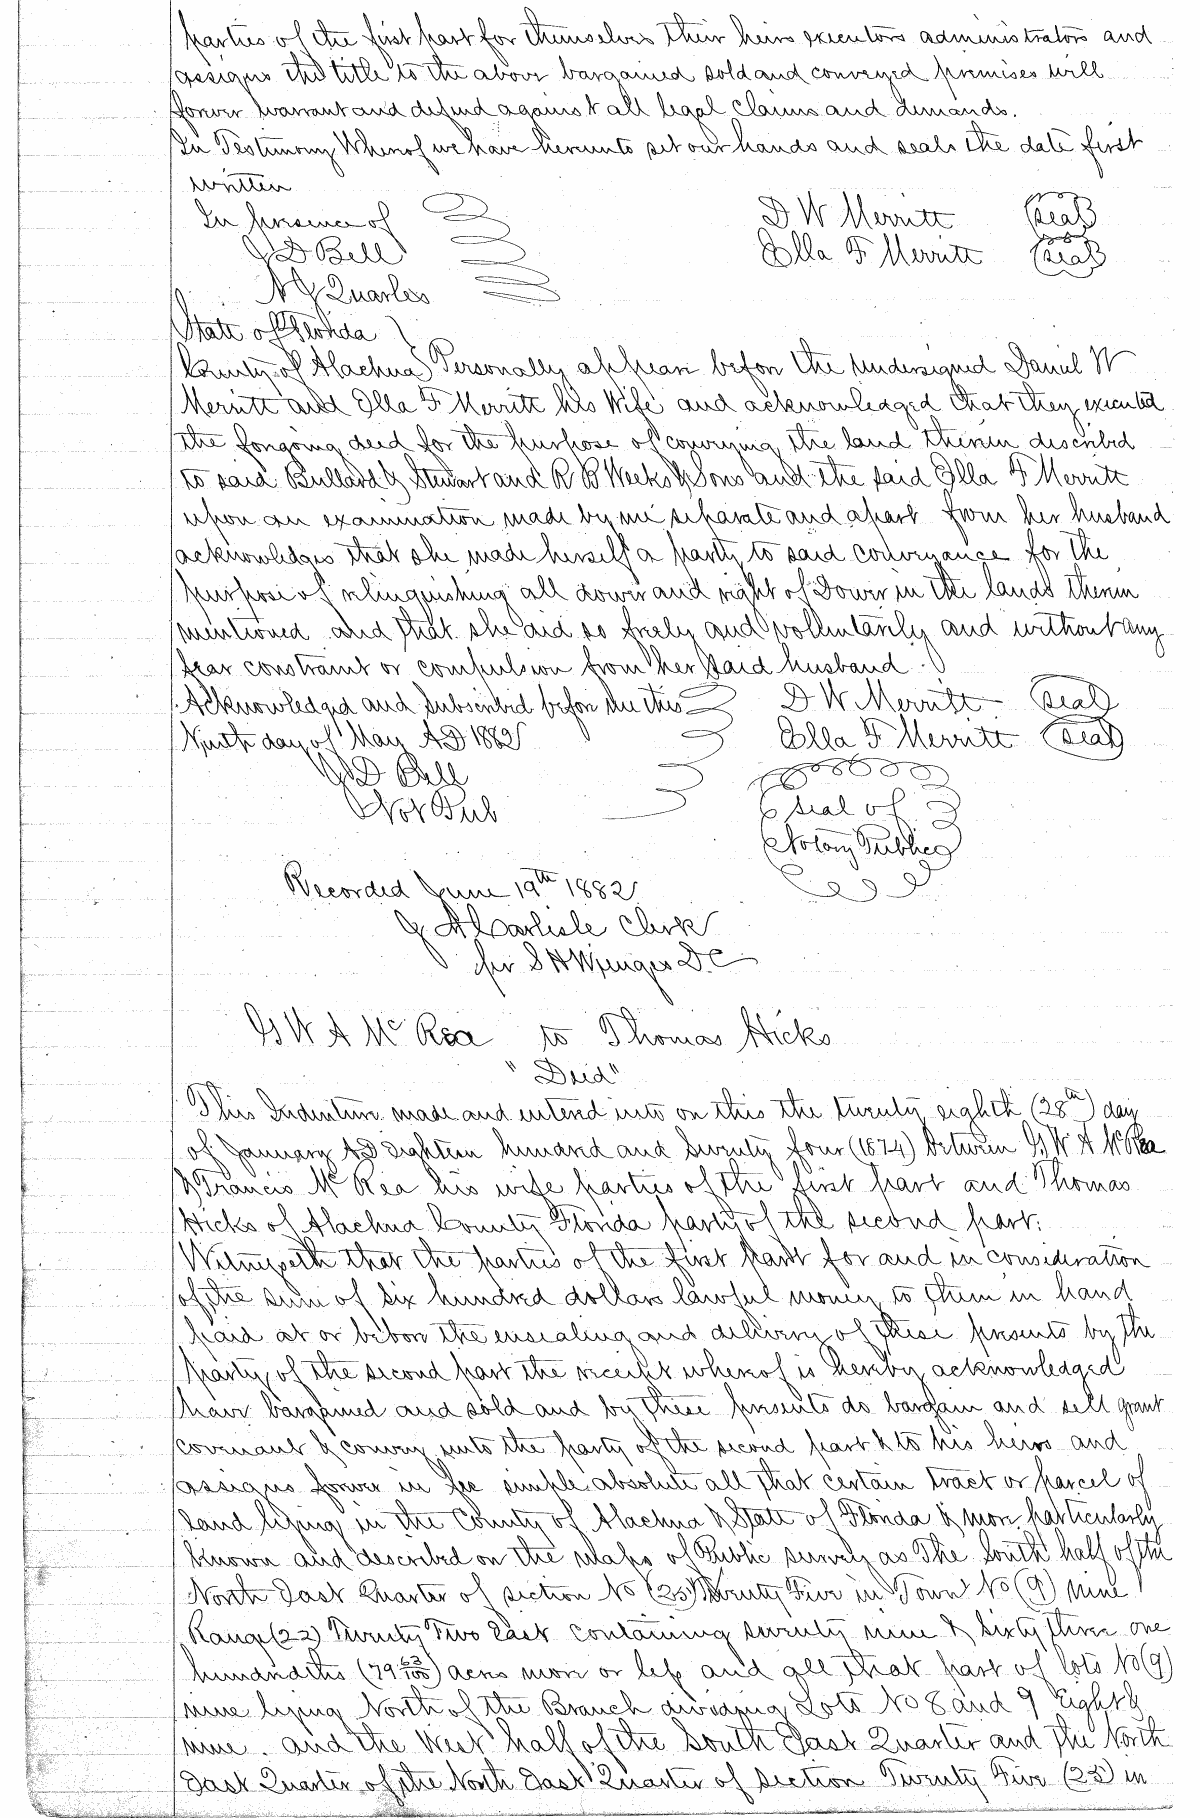 parties of the first part for themselves their heirs executors administrators and
assigns the title to the above bargained sold and conveyed premises will
forever warrant and defend against all legal claims and demands.
In Testimony Whereof we have hereunto set our hands and seals the date first
written
In presence of
J D Bell
N J Quarles
D W Merritt (Seal)
Ella F Merritt (Seal)
State of Florida }
County of Alachua } Personally appear before the undersigned Daniel W
Merritt and Ella F Merritt his Wife and acknowledged that they executed
the forgoing deed for the purpose of conveying the land therein described
to said Bullard & Stewart and R B Weeks & Sons and the said Ella F Merritt
upon an examination made by me separate and apart from her husband
acknowledges that she made herself a party to said conveyance for the
purpose of relinquishing all dower and right of Dower in the lands therein
mentioned and that she did so freely and volluntarily and without any
fear constraint or compulsion from her said husband.
Acknowledged and subscribed before me this
Ninth day of May AD 1882
J D Bell
Not Pub
D W Merritt (Seal)
Ella F Merritt (Seal)
Seal of
Notary Public
Recorded June 19th 1882
J A Carlisle Clerk
per S H D.C
G W A McRea to Thomas Hicks
"Deed"
This Indenture made and entered into on this the twenty eighth (28th) day
of January AD Eighteen hundred and Seventy four (1874) between G W A McRea
& Francis McRea his wife parties of the first part and Thomas
Hicks of Alachua County Florida party of the second part.
Witnesseth that the parties of the first part for and in consideration
of the sum of six hundred dollars lawful money to them in hand
paid at or before the ensealing and delivery of these presents by the
party of the second part the receipt whereof is hereby acknowledged
have bargained and sold and by these presents do bargain and sell grant
covenant & convey unto the party of the second part & to his heirs and
assigns forever in fee simple absolute all that certain tract or parcel of
Land lying in the County of Alachua & State of Florida & more particularly
known and described on the maps of Public survey as The South half of the
North East Quarter of section No (25) Twenty Five in Town No (9) nine
Range (22) Twenty Two East containing seventy nine & sixty three one
hundredths (79 63/100) acres more or less and all that part of lots No (9)
nine lying North of the Branch dividing Lots No 8 and 9 Eight &
nine. and the West half of the South East Quarter and The North
East Quarter of the North East Quarter of section Twenty Five (25) in